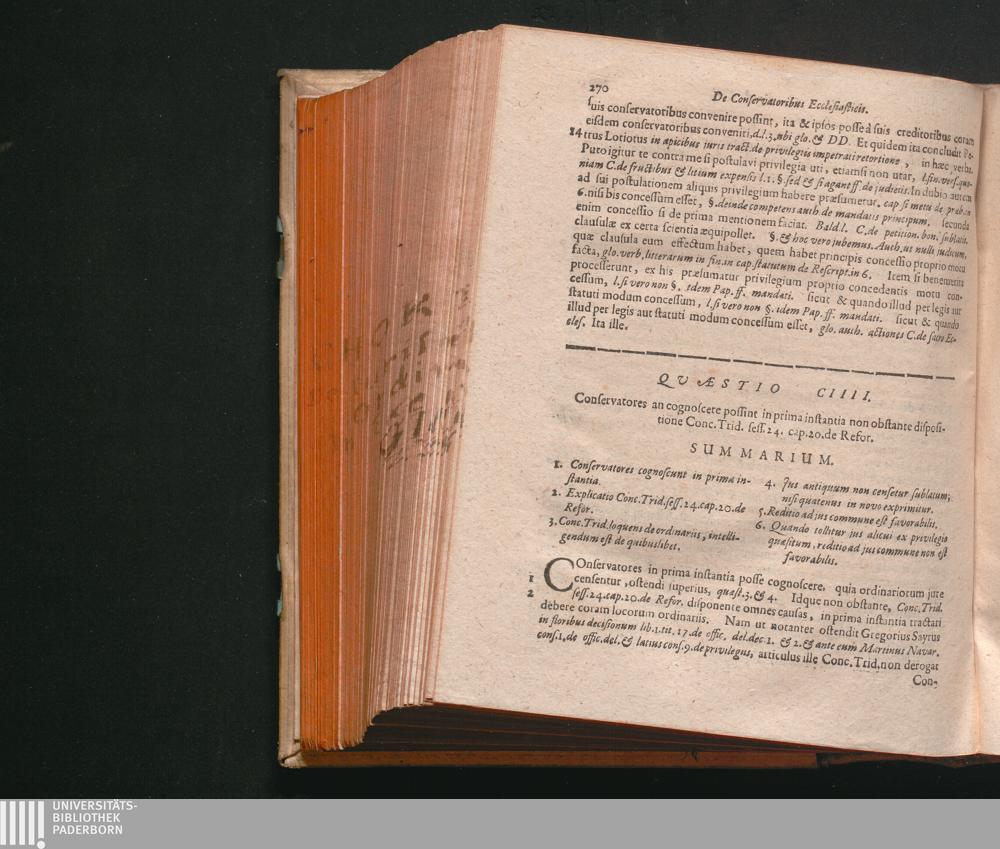 270
De Conſervatoribus Eccleſiaſticis.
ſuis conſervatoribus convenire poſſint, ita & ipſos poſſe à ſuis creditoribus coram
eiſdem conſervatoribus conveniri, d.l.3. ubi glo. & DD. Et quidem ita concludit Pe-
14 trus Lotiotus in apicibus juris tract. de privilegiis impetrati retortione, in hæc verba.
Puto igitur te contra me ſi poſtulavi privilegia uti, etiamſi non utar, l. fin. verſ. quo-
niam C. de fructibus & litium expenſis l.1. §. ſed & ſi agant ff. de judiciis. In dubio autem
ad ſui poſtulationem aliquis privilegium habere præſumetur. cap. ſi metu de præb. in
6. niſi bis conceſſum eſſet, §. deinde competens auth. de mandatis principum. ſecunda
enim conceſſio ſi de prima mentionem faciat. Bald. l. C. de petition. bon. ſublatis.
clauſulæ ex certa ſcientia æquipollet. §. & hoc vero jubemus. Auth. ut nulli judicum,
quæ clauſula eum effectum habet, quem habet principis conceſſio proprio motu
facta, glo. verb. litterarum in fin. in cap. ſtatutum de Reſcript. in 6. Item ſi benemerita
proceſſerunt, ex his præſumatur privilegium proprio concedentis motu con-
ceſſum, l. ſi vero non §. idem Pap. ff. mandati. ſicut & quando illud per legis aut
ſtatuti modum conceſſum, l. ſi vero non §. idem Pap. ff. mandati. ſicut & quando
illud per legis aut ſtatuti modum conceſſum eſſet, glo. auth. actiones C. de ſacro Ec-
cleſ. Ita ille.
QVÆSTIO CIIII.
Conſervatores an cognoſcere poſſint in prima inſtantia non obſtante diſpoſi-
tione Conc. Trid. ſeſſ. 24. cap. 20. de Refor.
SUMMARIUM.
1. Conſervatores cognoſcunt in prima in-
ſtantia.
2. Explicatio Conc. Trid. ſeſſ. 24. cap. 20. de
Refor.
3. Conc. Trid. loquens de ordinariis, intelli-
gendum eſt de quibuslibet.
4. Jus antiquum non cenſetur ſublatum;
niſi quatenus in novo exprimitur.
5. Reditio ad jus commune eſt favorabilis.
6. Quando tollitur jus alicui ex privilegio
quæſitum, reditio ad jus commune non eſt
favorabilis.
1 COnſervatores in prima inſtantia poſſe cognoſcere, quia ordinariorum jure
2 cenſentur, oſtendi ſuperius, quæſt. 3. & 4. Idque non obſtante, Conc. Trid.
ſeſſ. 24. cap. 20. de Refor. diſponente omnes cauſas, in prima inſtantia tractari
debere coram locorum ordinariis. Nam ut notanter oſtendit Gregorius Sayrus
in floribus deciſionum lib. 1. tit. 17. de offic. del. dec. 1. & 2. & ante eum Martinus Navar.
conſ. 1. de offic. del. & latius conſ. 9. de privilegiis, articulus ille Conc. Trid. non derogat
Con-
UNIVERSITÄTS-
BIBLIOTHEK
PADERBORN